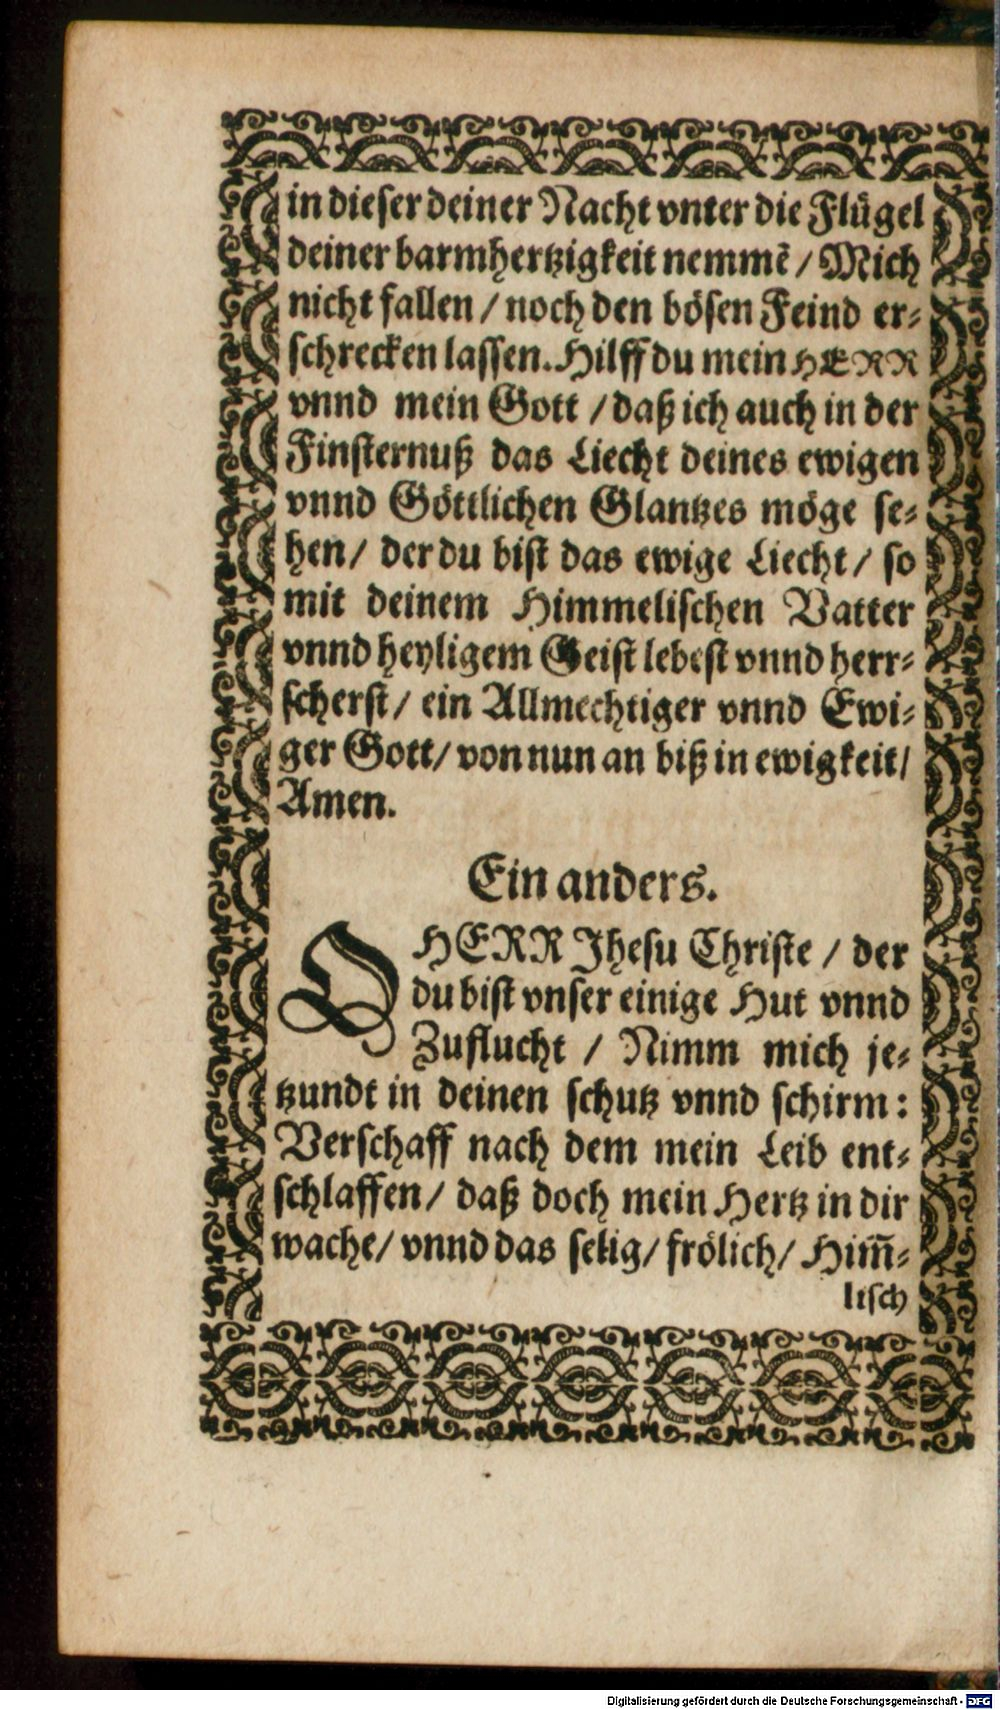 in dieser deiner Nacht vnter die Flügel
deiner barmhertzigkeit nemmẽ / Mich
nicht fallen / noch den bösen Feind er-
schrecken lassen. Hilff du mein HERR
vnnd mein Gott / daß ich auch in der
Finsternuß das Liecht deines ewigen
vnnd Göttlichen Glantzes möge se-
hen / der du bist das ewige Liecht / so
mit deinem Himmelischen Vatter
vnnd heyligem Geist lebest vnnd herr-
scherst / ein Allmechtiger vnnd Ewi-
ger Gott / von nun an biß in ewigkeit /
Amen.
Ein anders.
O HERR Jhesu Christe / der
du bist vnser einige Hut vnnd
Zuflucht / Nimm mich je-
tzundt in deinen schutz vnnd schirm :
Verschaff nach dem mein Leib ent-
schlaffen / daß doch mein Hertz in dir
wache / vnnd das selig / frölich / Him̃-
lisch
Digitalisierung gefördert durch die Deutsche Forschungsgemeinschaft - DFG